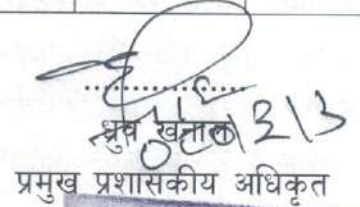 ....................
ध्रुव खनाल
प्रमुख प्रशासकीय अधिकृत